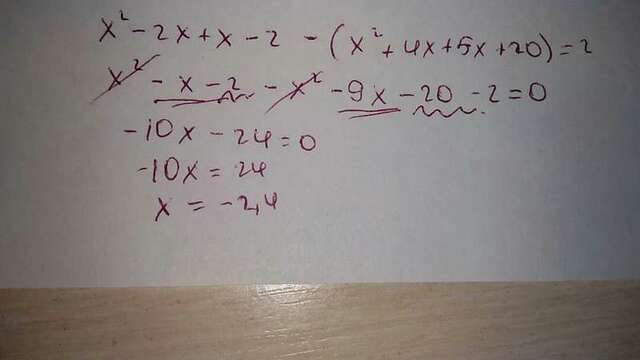 x² - 2x + x - 2 - (x² + 4x + 5x + 20) = 2
x² - x - 2 - x² - 9x - 20 - 2 = 0
-10x - 24 = 0
-10x = 24
x = -2,4